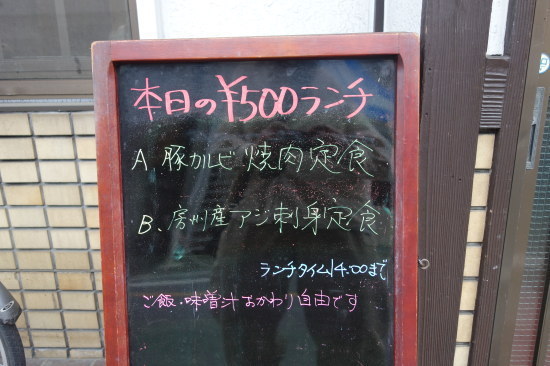 本日の¥500ランチ
A 豚カルビ焼肉定食
B、房州産アジ刺身定食
ランチタイム14:00まで
ご飯・味噌汁おかわり自由です